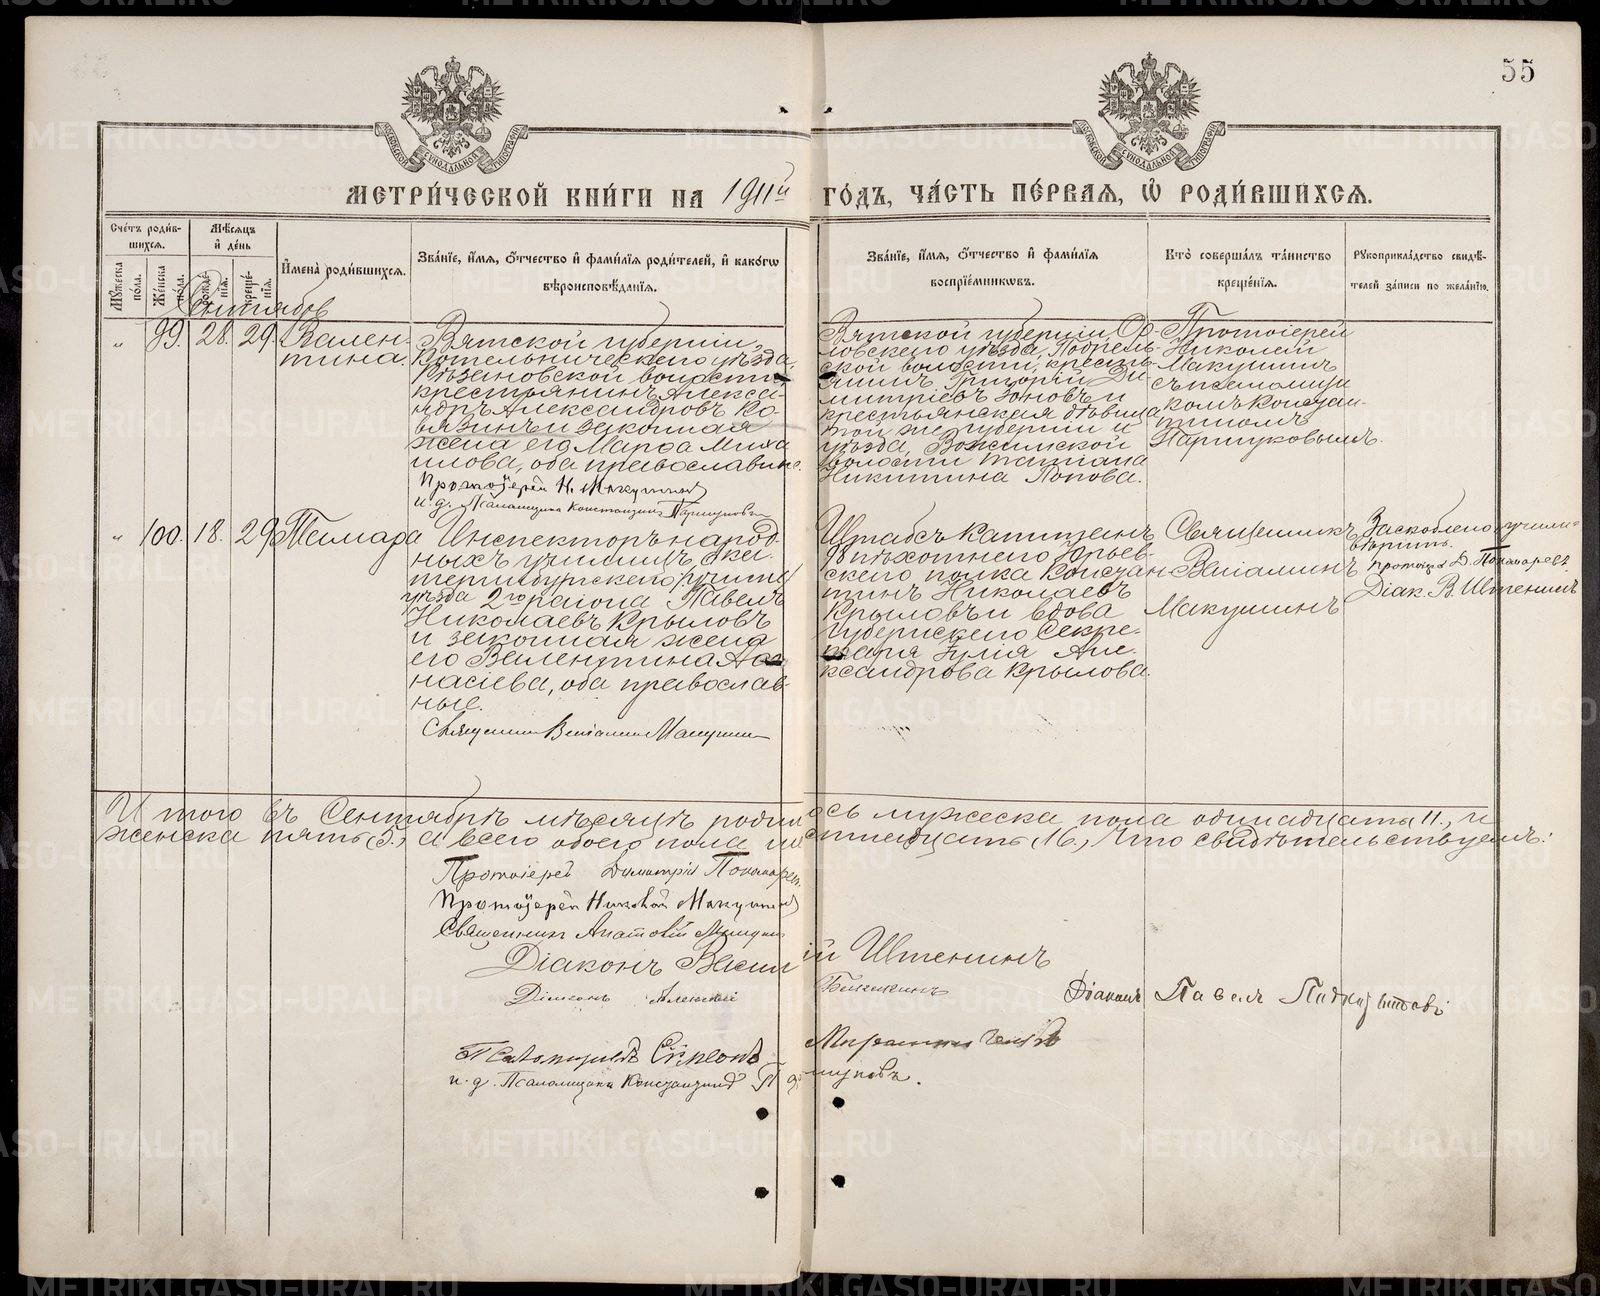 55
МОСКОВСКОЙ СѴНОДАЛЬНОЙ ТИПОГРАФІИ
МОСКОВСКОЙ СѴНОДАЛЬНОЙ ТИПОГРАФІИ
МЕТРИ́ЧЕСКОЙ КНИ́ГИ НА 1911й ГО́ДЪ, ЧА́СТЬ ПЕ́РВАЯ, Ѡ҆ РОДИ́ВШИХСЯ.
Сче́тъ роди́в-
шихся.
Мѣ́сяцъ
и҆ де́нь
Мꙋ́жеска по́ла.
Же́нска по́ла.
рожде́-нїя.
креще́-нїя.
И҆мена̀ роди́вшихся.
Зва́нїе, и҆́мя, ѻ҆́тчество и҆ фами́лїя роди́телей, и҆ како́гѡ
вѣроисповѣ́данїя.
Зва́нїе, и҆́мя, ѻ҆́тчество и҆ фами́лїя
воспрїе́мниковъ.
Кто̀ соверша́лъ та́инство
креще́нїя.
Рꙋкоприкла́дство свидѣ́-
телей за́писи по жела́нїю.
Сентябрь
„ 99. 28. 29. Вален-
тина.
Вятской губерніи,
Котельническаго уѣзда,
крестьянинъ Алекса-
ндръ Александровъ Ко-
вязинъ и законная
жена его Марѳа Миха
илова, оба православные.
Протоіерей Н. Макушинъ
и. д. Псаломщика Константинъ Паршуковъ
Вятской губерніи, Ор-
ловскаго уѣзда,
ской волости, кресть-
янинъ Григорій Ди
митріевъ Зоновъ и
крестьянская дѣвица
той же губерніи и
уѣзда,
волости Татіана
Никитина Попова.
Протоіерей
Николай
Макушинъ
съ псаломщи
комъ Констан-
тиномъ
Паршуковымъ.
„ 100. 18. 29. Тамара
Инспекторъ народ-
ныхъ училищъ, Ека-
теринбургскаго
уѣзда 2го раіона Павелъ
Николаевъ Крыловъ
и законная жена
его Валентина Аѳа
насіева, оба православ-
ные.
Священникъ Веніаминъ Макушинъ
Штабсъ Капитанъ
пѣхотнаго Юрьев-
скаго полка Констан-
тинъ Николаевъ
Крыловъ и вдова
Губернскаго Секре-
таря Юлія Але-
ксандрова Крылова.
Священникъ
Веніаминъ
Макушинъ
Заскоблено
вѣрить.
Протоіер. Д. Пономаревъ
Діак. В. Иштенинъ
Итого въ Сентябрѣ мѣсяцѣ родилось мужеска пола одинадцать 11., и
женска пять (5.) а всего обоего пола шестнадцать (16.) Что свидѣтельствуемъ:
Протоіерей Димитрій Пономаревъ
Протоіерей Николай Макушинъ
Священникъ Анатолій
Діаконъ Василій Иштенинъ
Діаконъ
Діаконъ Павелъ
Псаломщикъ
и. д. Псаломщика Константинъ Паршуковъ.
METRIKI.GASO-URAL.RU